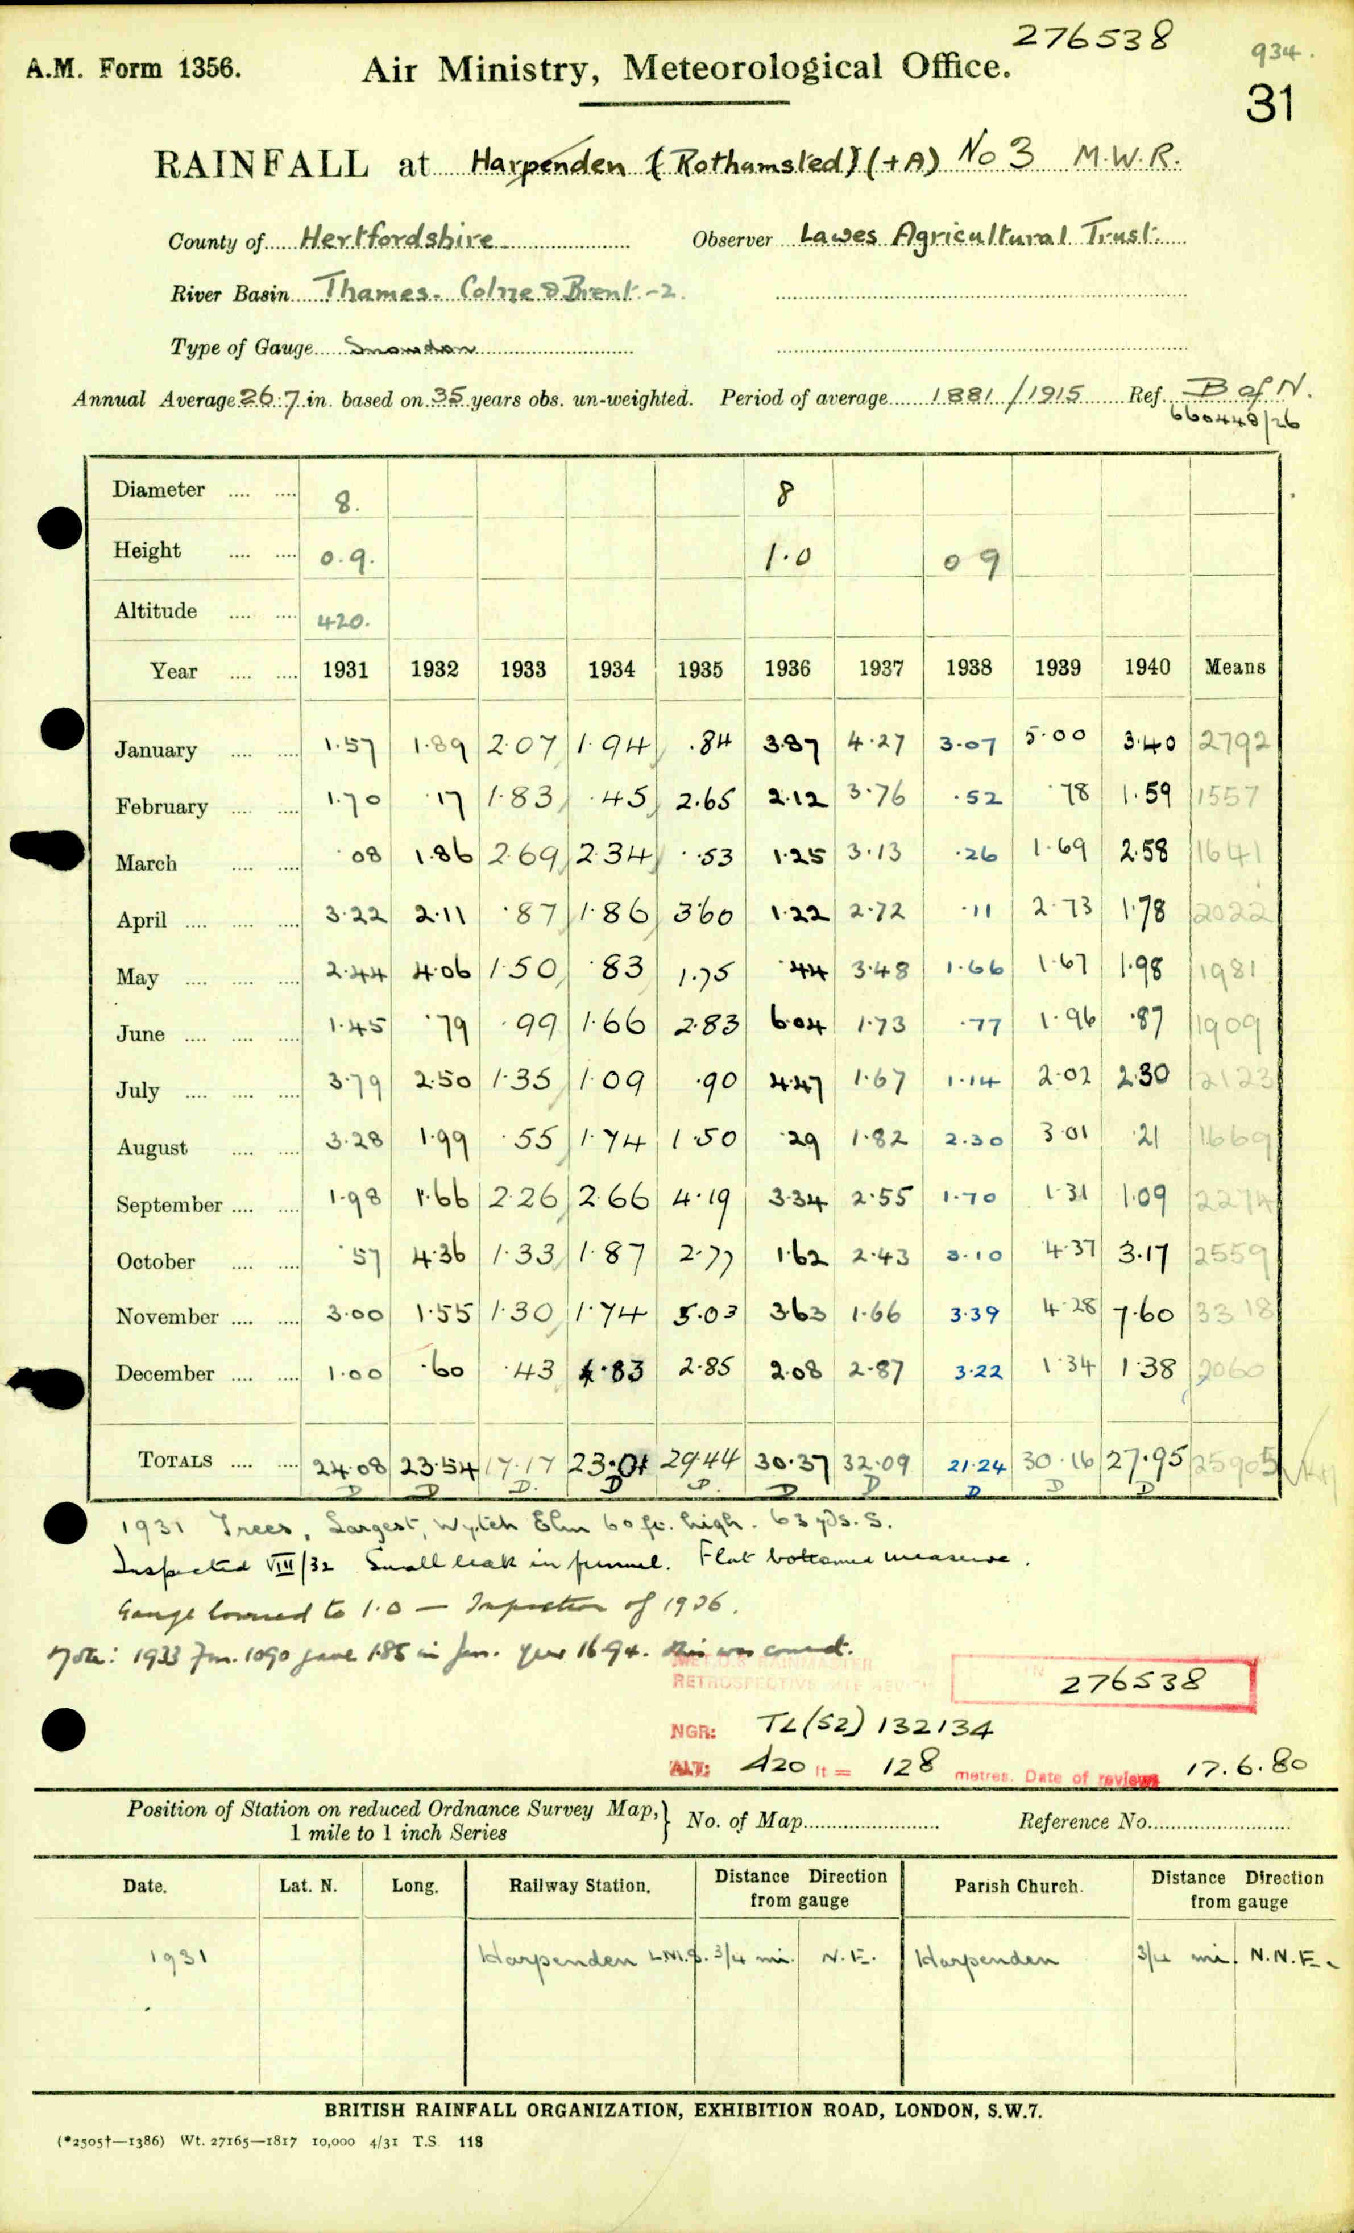 276538
934.
A.M. Form 1356.
Air Ministry, Meteorological Office.
31
RAINFALL at Harpenden (Rothamsted) (+A) No 3 M.W.R.
County of Hertfordshire Observer Lawes Agricultural Trust.
River Basin Thames. Colne & Brent -2.
Type of Gauge Snowdon
Annual Average 26.7 in. based on 35 years obs. un-weighted. Period of average 1881/1915 Ref. B of N.
660448/26
Diameter 8. 8
Height 0.9. 1.0 09
Altitude 420.
Year 1931 1932 1933 1934 1935 1936 1937 1938 1939 1940 Means
January 1.57 1.89 2.07 1.94 .84 3.87 4.27 3.07 5.00 3.40 2792
February 1.70 .17 1.83 .45 2.65 2.12 3.76 .52 .78 1.59 1557
March .08 1.86 2.69 2.34 .53 1.25 3.13 .26 1.69 2.58 1641
April 3.22 2.11 .87 1.86 3.60 1.22 2.72 .11 2.73 1.78 2022
May 2.44 4.06 1.50 .83 1.75 .44 3.48 1.66 1.67 1.98 1981
June 1.45 .79 .99 1.66 2.83 6.04 1.73 .77 1.96 .87 1909
July 3.79 2.50 1.35 1.09 .90 4.47 1.67 1.14 2.02 2.30 2123
August 3.28 1.99 .55 1.74 1.50 .29 1.82 2.30 3.01 .21 1669
September 1.98 1.66 2.26 2.66 4.19 3.34 2.55 1.70 1.31 1.09 2274
October .57 4.36 1.33 1.87 2.77 1.62 2.43 3.10 4.37 3.17 2559
November 3.00 1.55 1.30 1.74 5.03 3.63 1.66 3.39 4.28 7.60 3318
December 1.00 .60 .43 4.83 2.85 2.08 2.87 3.22 1.34 1.38 2060
TOTALS 24.08 23.54 17.17 23.01 29.44 30.37 32.09 21.24 30.16 27.95 25905
D D D. D D. D D D D D
1931 Trees, Largest, Wytch Elm 60 ft. high. 63 yds. S.
Inspected VIII/32 Small leak in funnel. Flat bottomed measure.
Gauge lowered to 1.0 — Inspection of 1936.
Note: 1933 Fm. 1090 gave 1.85 in Jan. Year 16.94. this was correct.
MET.O.8 RAINMASTER
RETROSPECTIVE SITE REVIEW
276538
NGR: TL(52) 132134
ALT: 420 ft = 128 metres. Date of review 17.6.80
Position of Station on reduced Ordnance Survey Map, No. of Map Reference No.
1 mile to 1 inch Series
Date. Lat. N. Long. Railway Station. Distance Direction from gauge Parish Church. Distance Direction from gauge
1931 Harpenden L.M.S. 3/4 mi. N.E. Harpenden 3/4 mi. N.N.E.
BRITISH RAINFALL ORGANIZATION, EXHIBITION ROAD, LONDON, S.W.7.
(*2505†—1386) Wt. 27165—1817 10,000 4/31 T.S. 118